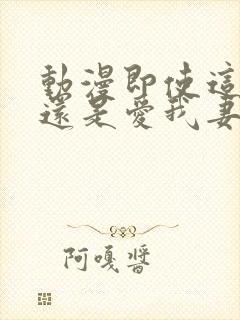 動漫即使這
還是愛我妻
阿嘎醬